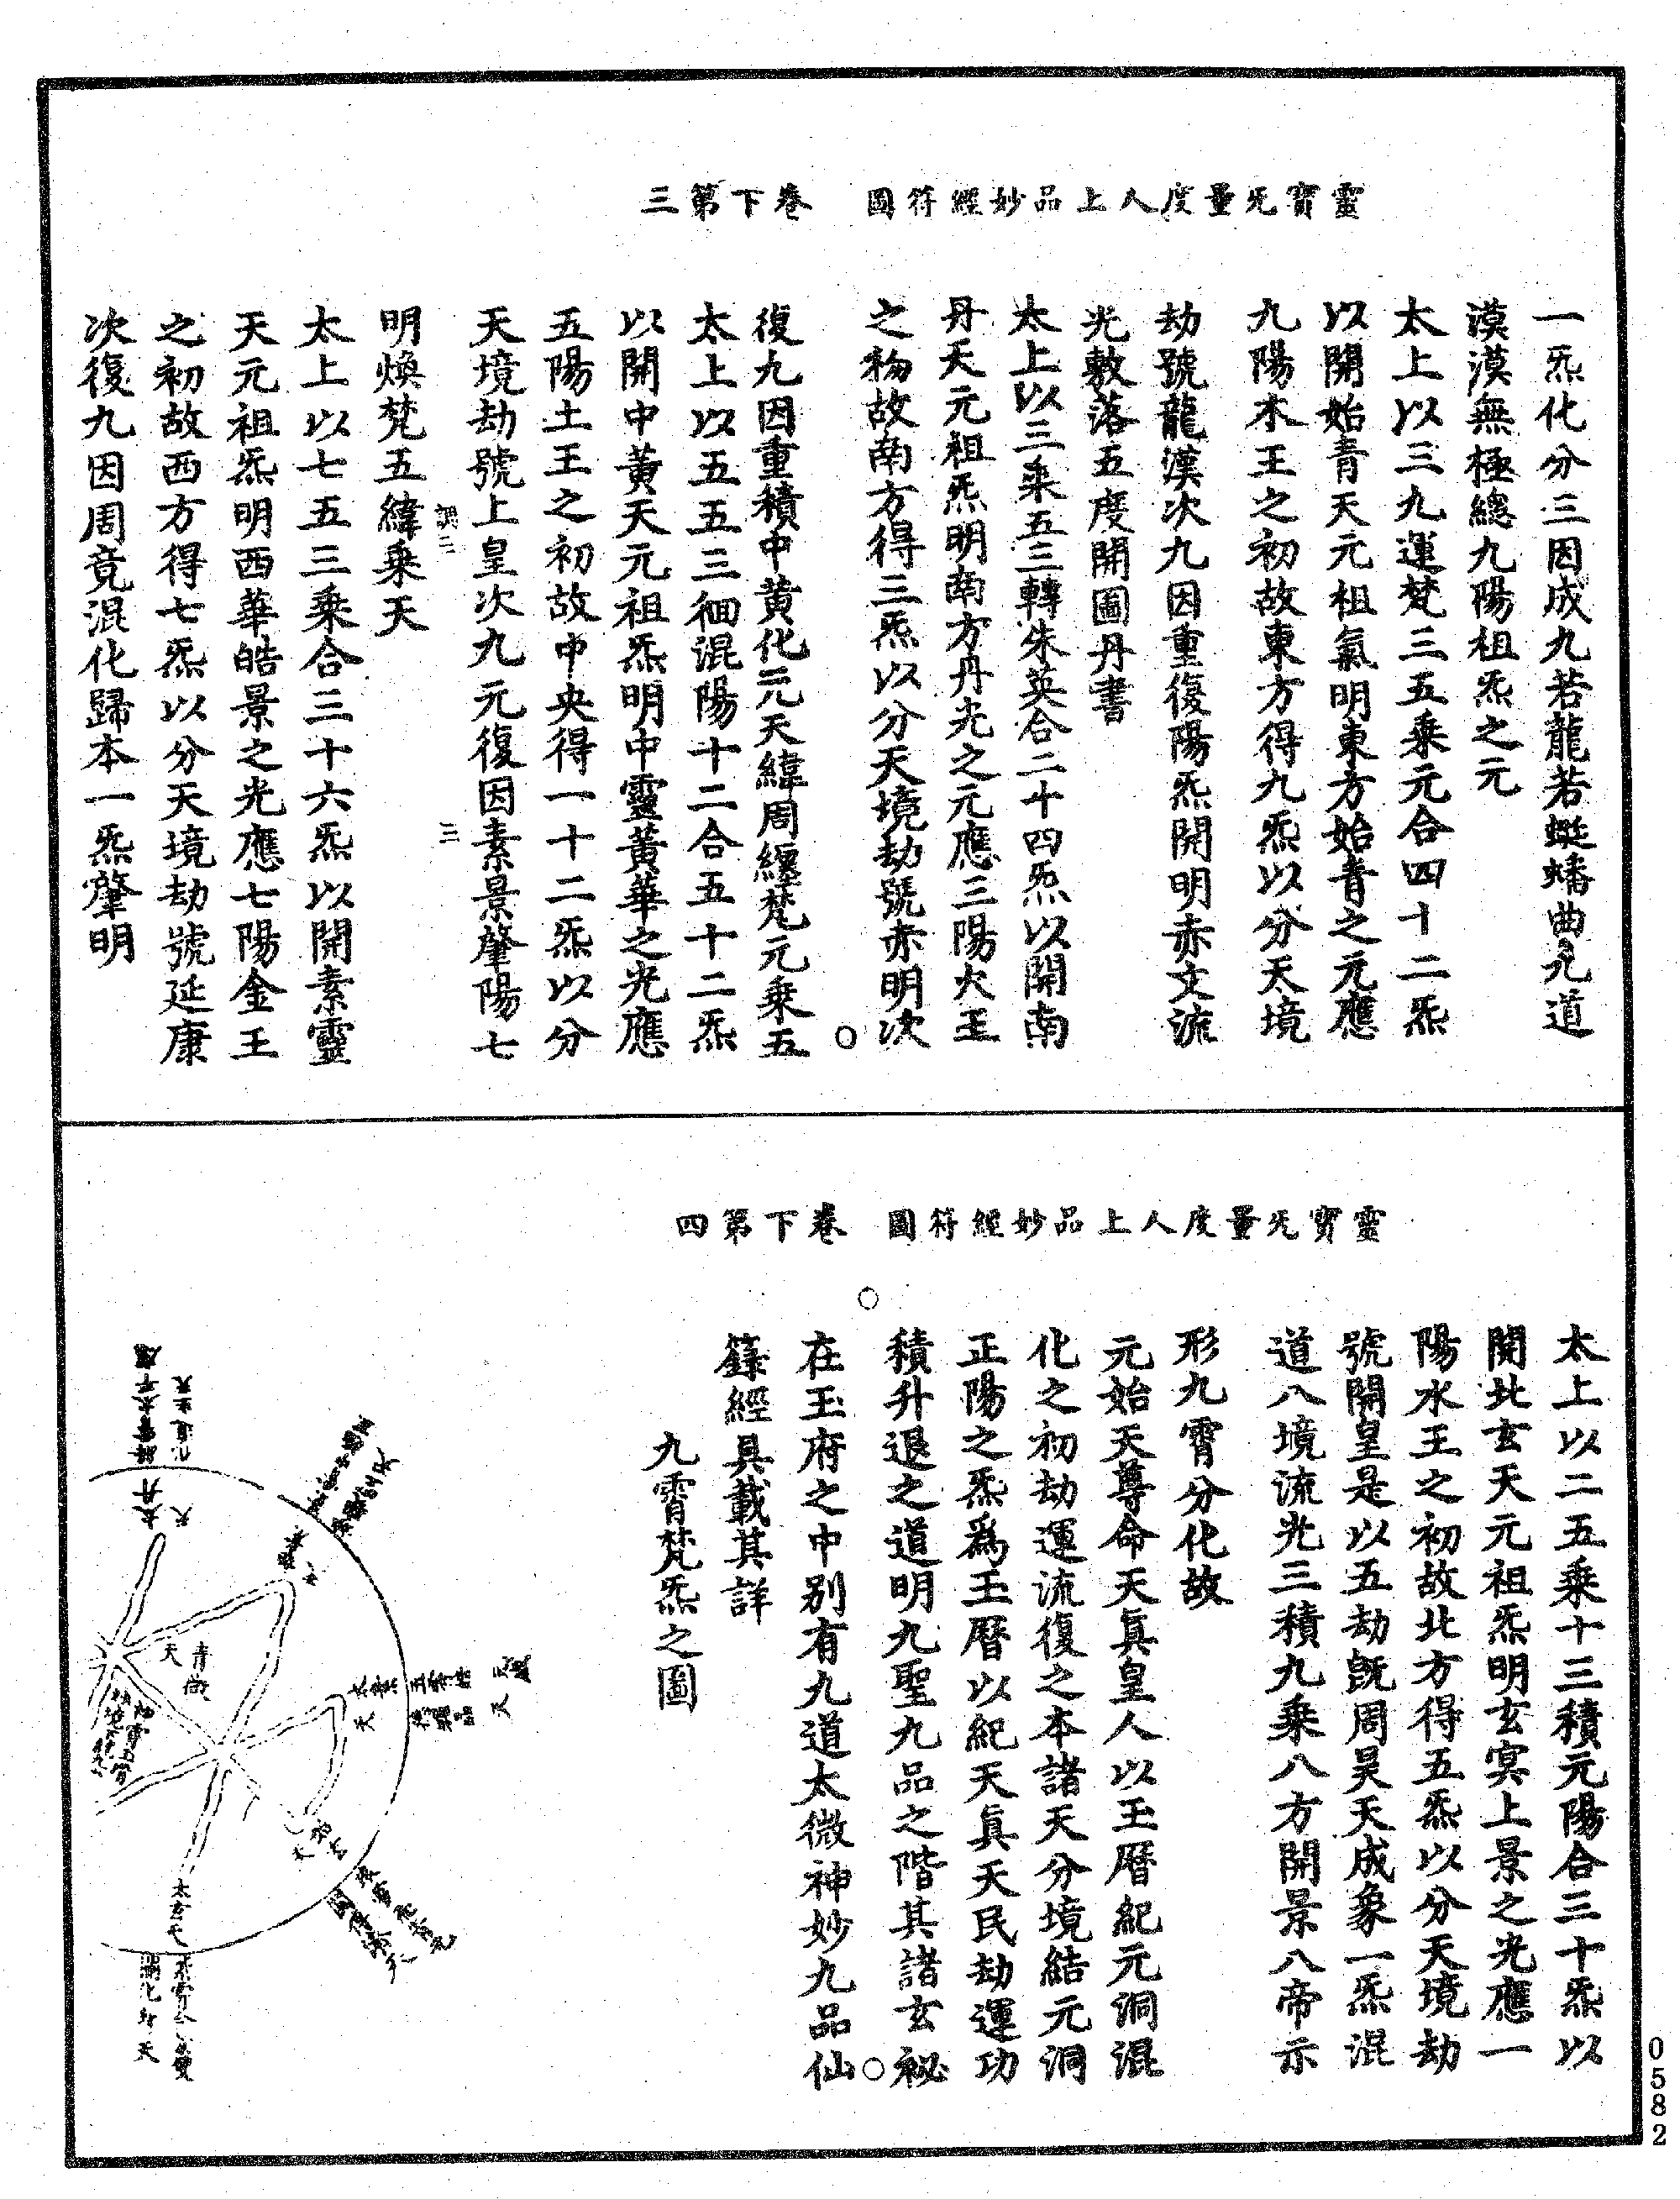 靈寶无量度人上品妙經符圖　卷下第三
一炁化分三因成九若龍若蜒蟠曲九道
漠漠無極總九陽祖炁之元
太上以三九運梵三五乗元合四十二炁
以開始青天元祖氣明東方始青之元應
九陽木王之初故東方得九炁以分天境
劫號龍漢次九因重復陽炁開明赤文流
光敷落五度開圖丹書
太上以三乗五三轉朱英合二十四炁以開南
丹天元祖炁明南方丹光之元應三陽火王
之初故南方得三炁以分天境劫號赤明次
復九因重積中黄化元天緯周纏梵元乗五
太上以五五三徊混陽十二合五十二炁
以開中黄天元祖炁明中靈黄華之光應
五陽土王之初故中央得一十二炁以分
天境劫號上皇次九元復因素景肇陽七
調三　三
明煥梵五緯乗天
太上以七五三乗合三十六炁以開素靈
天元祖炁明西華皓景之光應七陽金王
之初故西方得七炁以分天境劫號延康
次復九因周竟混化歸本一炁肇明
靈寶无量度人上品妙經符圖　卷下第四
太上以二五乗十三積元陽合三十炁以
開北玄天元祖炁明玄㝠上景之光應一
陽水王之初故北方得五炁以分天境劫
號開皇是以五劫旣周昊天成象一炁混
道八境流光三積九乗八方開景八帝示
形九霄分化故
元始天尊命天眞皇人以玉曆紀元洞混
化之初劫運流復之本諸天分境結元洞
正陽之炁爲玉曆以紀天眞天民劫運功
積升退之道明九聖九品之階其諸玄祕
在玉府之中別有九道太微神妙九品仙
籙經具載其詳
九霄梵炁之圖
青微
天
太玄
0582